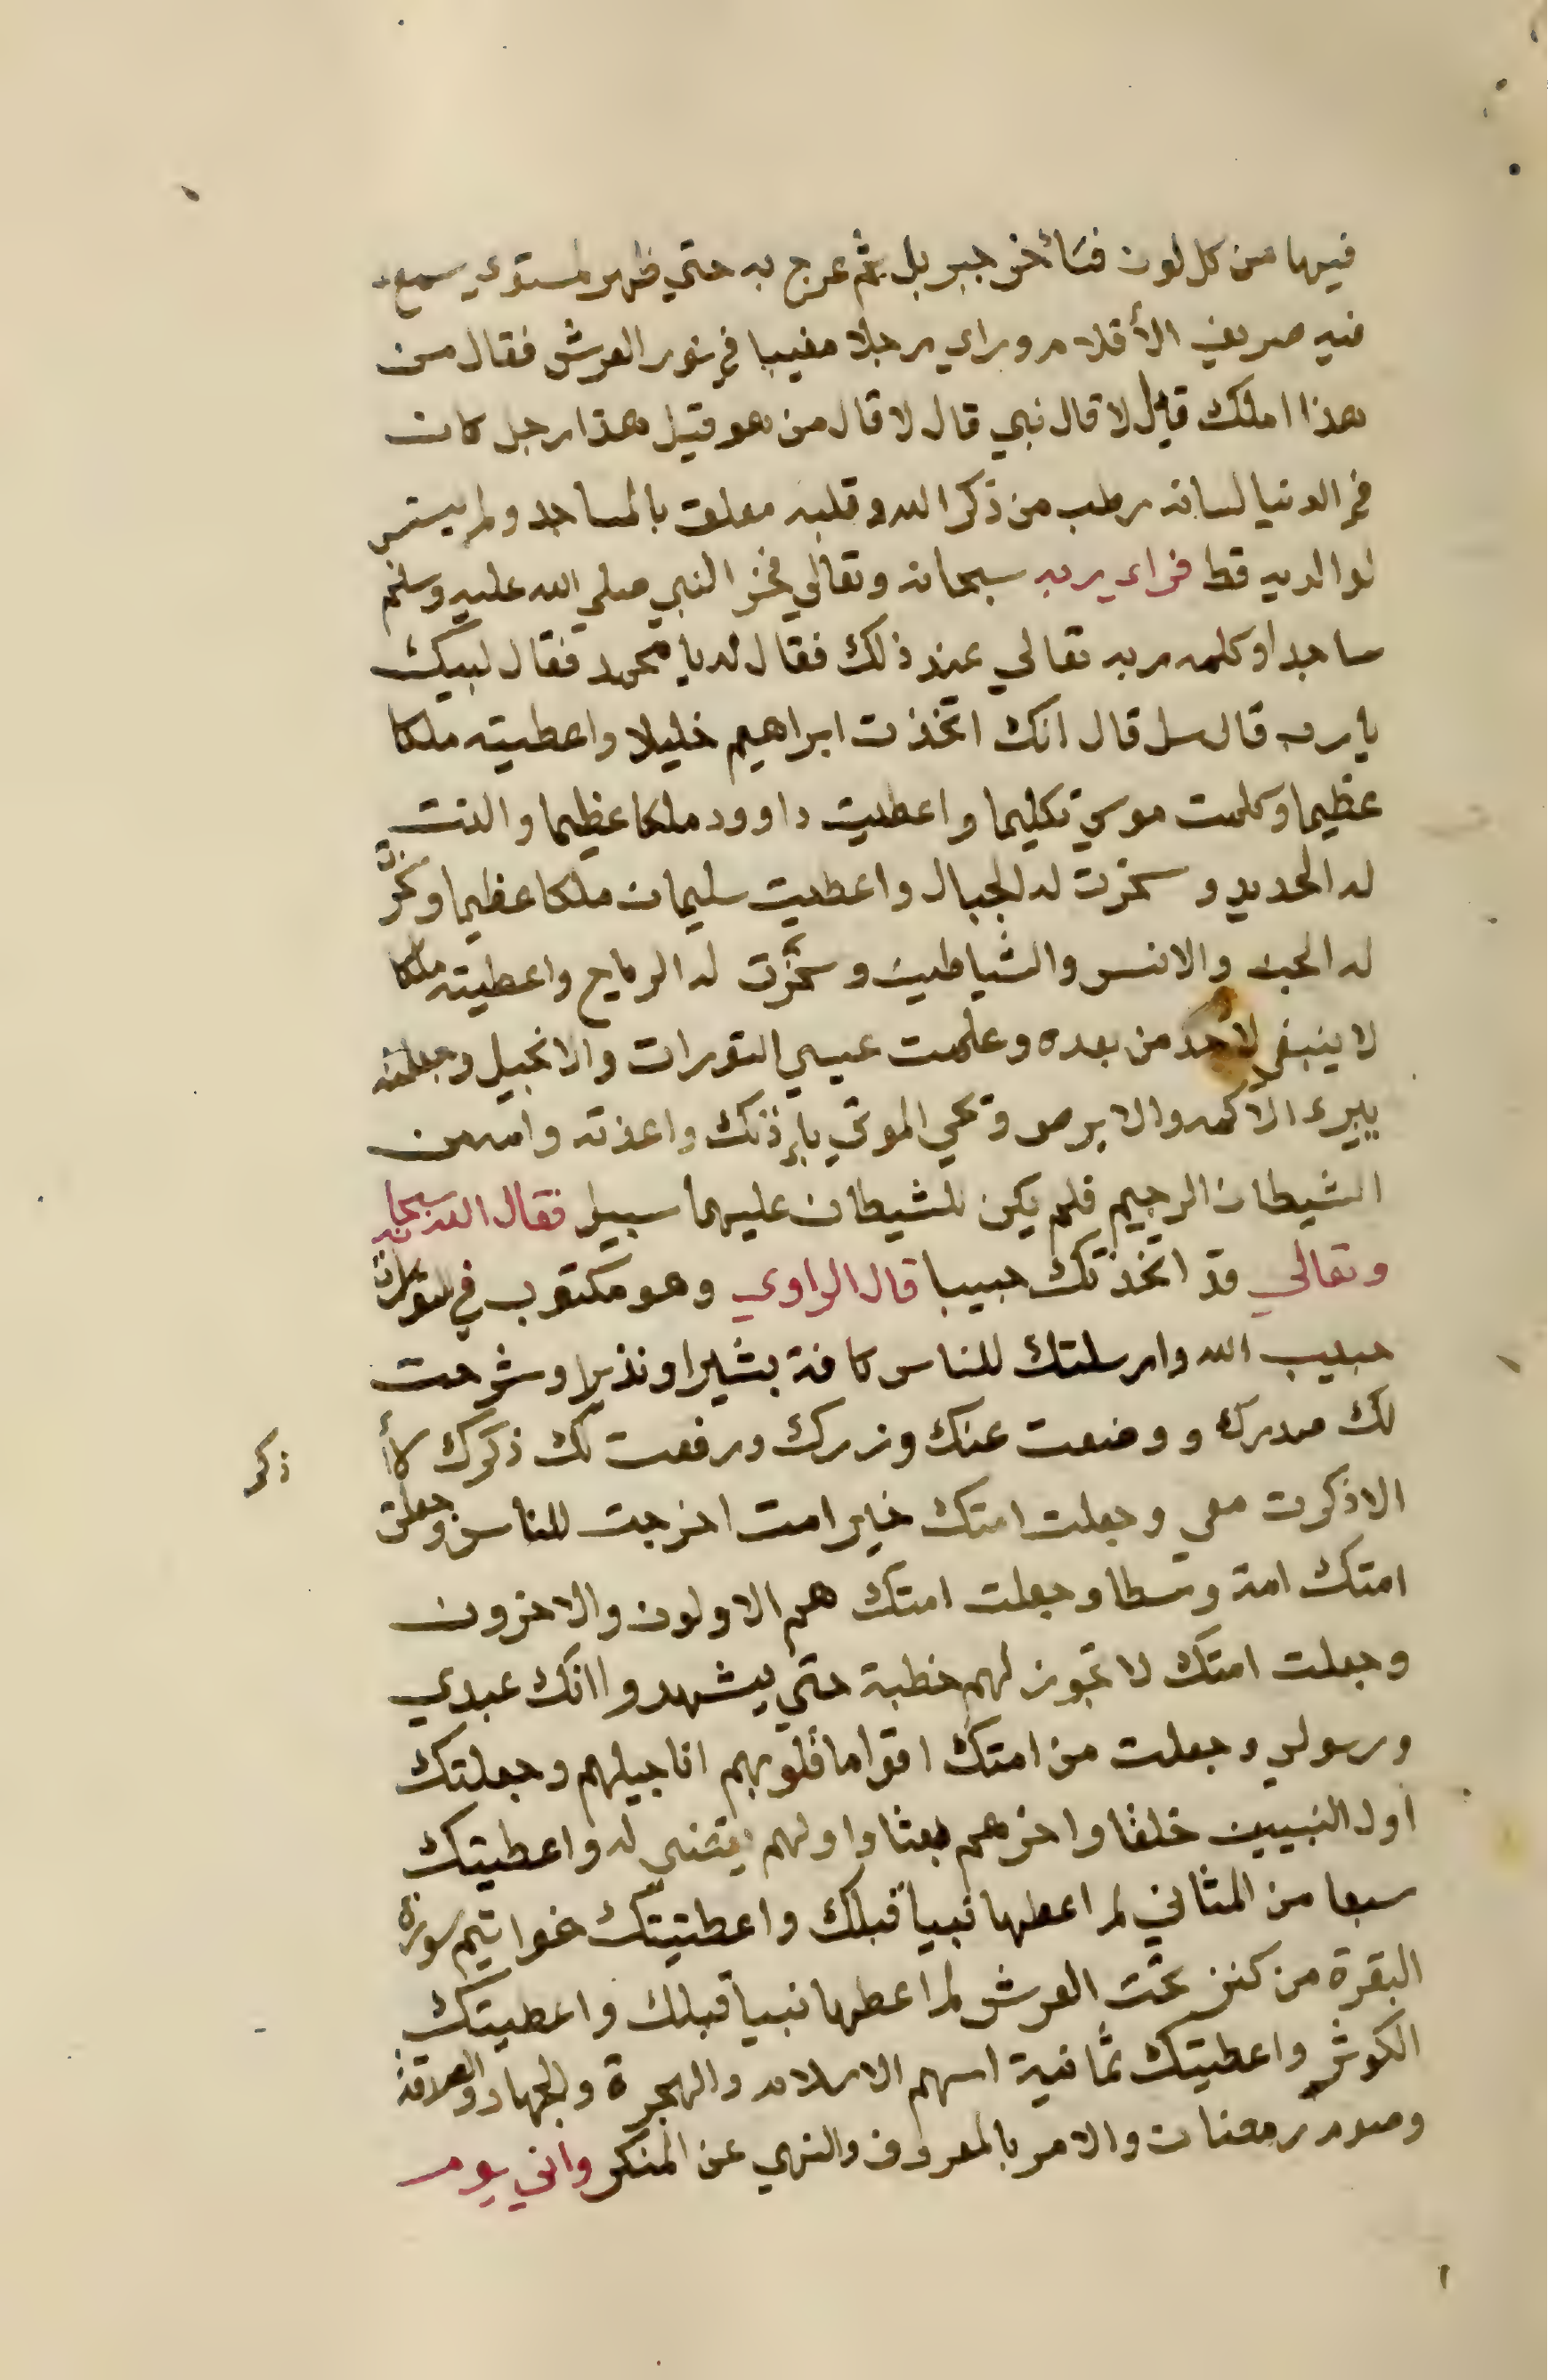 فيها من كل لون فتأخر جبريل ثم عرج به حتي ظهر لمستوي سمع
فيه صريف الأقلام وراي رجلا مغيبا في نور العرش فقال من
هذا املك قيل لا قال نبي قال لا قال من هو قيل هذا رجل كان
في الدنيا لسانه رطب من ذكر الله وقلبه معلق بالمساجد ولم يستسب
لوالديه قط فراي ربه سبحانه وتعالي فخر النبي صلي الله عليه وسلم
ساجدا وكلمه ربه تعالي عند ذلك فقال له يا محمد فقال لبيك
يا رب قال سل قال انك اتخذت ابراهيم خليلا واعطيته ملكا
عظيما وكلمت موسي تكليما واعطيت داوود ملكا عظيما والنت
له الحديد وسخرت له الجبال واعطيت سليمان ملكا عظيما وسخرت
له الجن والانس والشياطين وسخرت له الرياح واعطيته ملكا
لا ينبغي لاحد من بعده وعلمت عيسي التورات والانجيل وجعلته
يبرء الاكمه والابرص وتحي الموتي بإذنك واعذته وامه من
الشيطان الرجيم فلم يكن للشيطان عليهما سبيل فقال الله سبحانه
وتعالي قد اتخذتك حبيبا قال الراوي وهو مكتوب في التورات
حبيب الله وارسلتك للناس كافة بشيرا ونذيرا وشرحت
لك صدرك ووضعت عنك وزرك ورفعت لك ذكرك لا أ
ذكر
الا ذكرت معي وجعلت امتك خير امت اخرجت للناس وجعلت
امتك امة وسطا وجعلت امتك هم الاولون والاخرون
وجعلت امتك لا تجوز لهم خطبة حتي يشهدوا انك عبدي
ورسولي وجعلت من امتك اقواما قلوبهم اناجيلهم وجعلتك
اول النبيين خلقا واخرهم بعثا واولهم يقضي له واعطيتك
سبعا من المثاني لم اعطها نبيا قبلك واعطيتك خواتيم سورة
البقرة من كنز تحت العرش لم اعطها نبيا قبلك واعطيتك
الكوثر واعطيتك ثمانية اسهم الاسلام والهجرة والجهاد والصدقة
وصوم رمضان والامر بالمعروف والنهي عن المنكر واني يوم